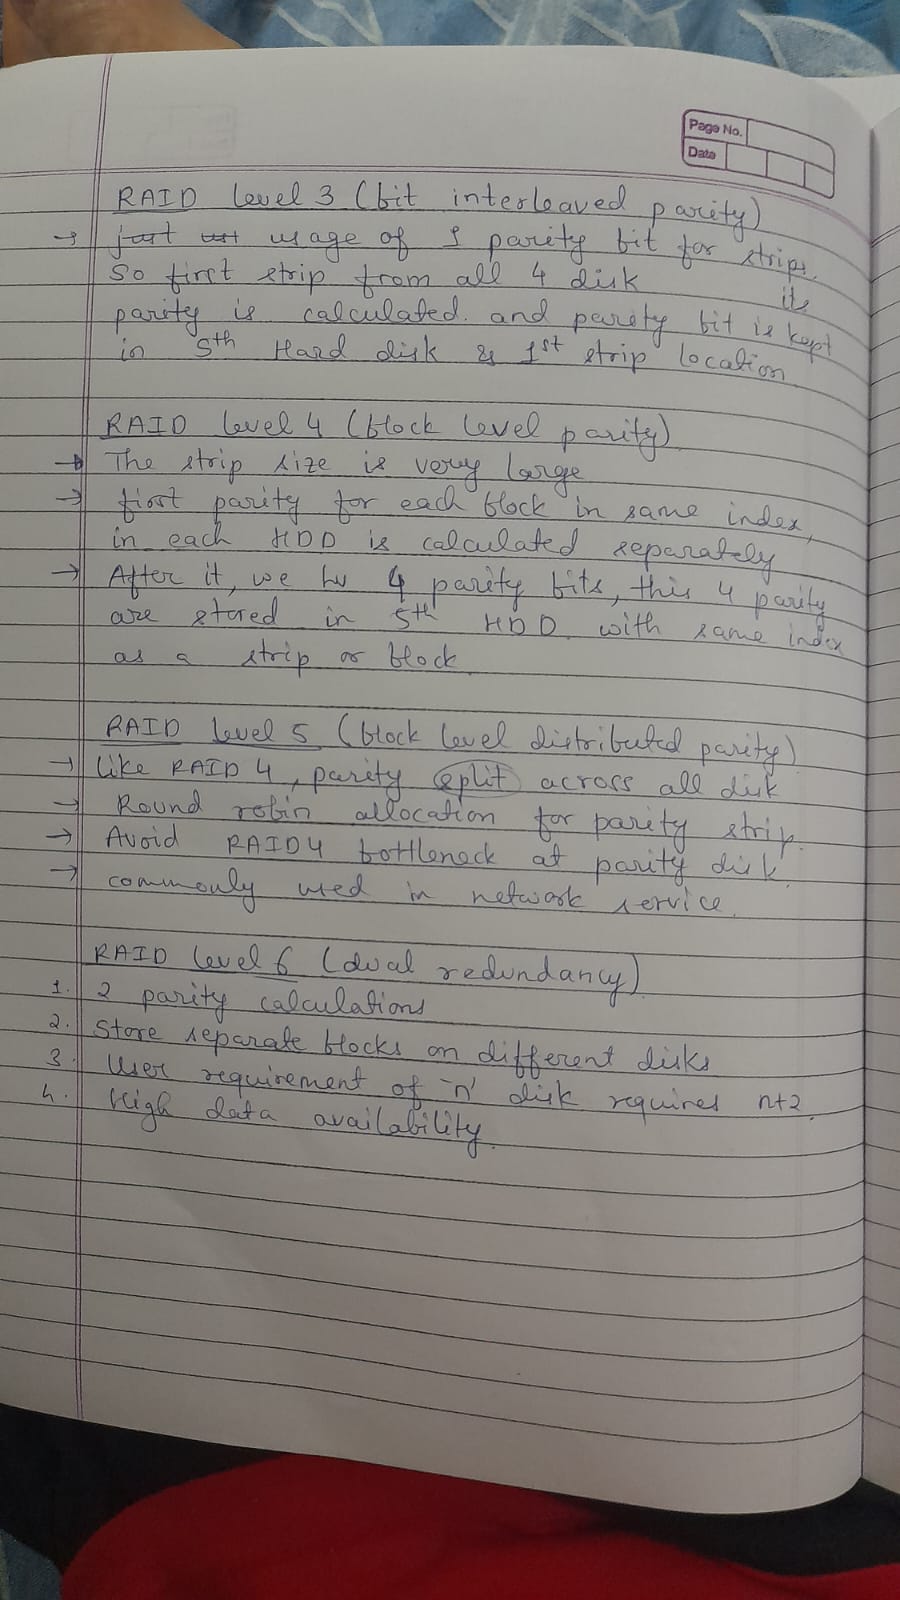 Page No.
Date
RAID level 3 (bit interleaved parity)
→ usage of 1 parity bit for strips.
So first strip from all 4 disk its
parity is calculated. and parity bit is kept
in 5th Hard disk & 1st strip location
RAID level 4 (block level parity)
→ The strip size is very large
→ first parity for each block in same index,
in each HDD is calculated separately
→ After it, we hv 4 parity bits, this 4 parity
are stored in 5th HDD. with same index
as a strip or block.
RAID level 5 (block level distributed parity)
→ like RAID 4, parity split across all disk
→ Round robin allocation for parity strip.
→ Avoid RAID4 bottleneck at parity disk.
→ commonly used in network service.
RAID level 6 (dual redundancy)
1. 2 parity calculations
2. Store separate blocks on different disks
3. User requirement of 'n' disk requires n+2.
4. High data availability.